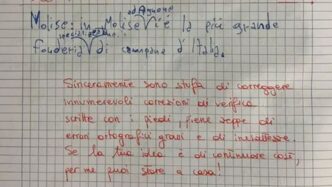 ad Agnone
Molise: in Molise vi è la più grande
fonderia di campane d'Italia.
Sinceramente sono stufa di correggere
innumerevoli correzioni di verifica
scritte con i piedi, piene zeppe di
errori ortografici gravi e di inesattezze.
Se la tua idea è di continuare così,
per me puoi stare a casa!